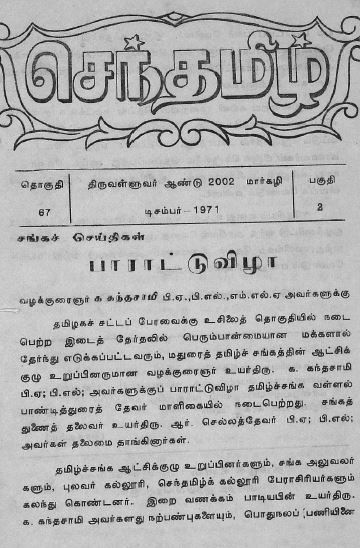 செந்தமிழ்
தொகுதி திருவள்ளுவர் ஆண்டு 2002 மார்கழி பகுதி
67 டிசம்பர் - 1971 2
சங்கச் செய்திகள்
பாராட்டுவிழா
வழக்குரைஞர் க கந்தசாமி பி.ஏ.,பி.எல்.,எம்.எல்.ஏ அவர்களுக்கு
தமிழகச் சட்டப் பேரவைக்கு உசிலைத் தொகுதியில் நடை
பெற்ற இடைத் தேர்தலில் பெரும்பான்மையான மக்களால்
தேர்ந்து எடுக்கப்பட்டவரும், மதுரைத் தமிழ்ச் சங்கத்தின் ஆட்சிக்
குழு உறுப்பினருமான வழக்குரைஞர் உயர்திரு. க. கந்தசாமி
பி.ஏ; பி.எல்; அவர்களுக்குப் பாராட்டுவிழா தமிழ்ச்சங்க வள்ளல்
பாண்டித்துரைத் தேவர் மாளிகையில் நடைபெற்றது. சங்கத்
துணைத் தலைவர் உயர்திரு. ஆர். செல்லத்தேவர் பி.ஏ; பி.எல்;
அவர்கள் தலைமை தாங்கினார்கள்.
தமிழ்ச்சங்க ஆட்சிக்குழு உறுப்பினர்களும், சங்க அலுவலர்
களும், புலவர் கல்லூரி, செந்தமிழ்க் கல்லூரி பேராசிரியர்களும்
கலந்து கொண்டனர். இறை வணக்கம் பாடியபின் உயர்திரு.
க. கந்தசாமி அவர்களது நற்பண்புகளையும், பொதுநலப் பணியினை